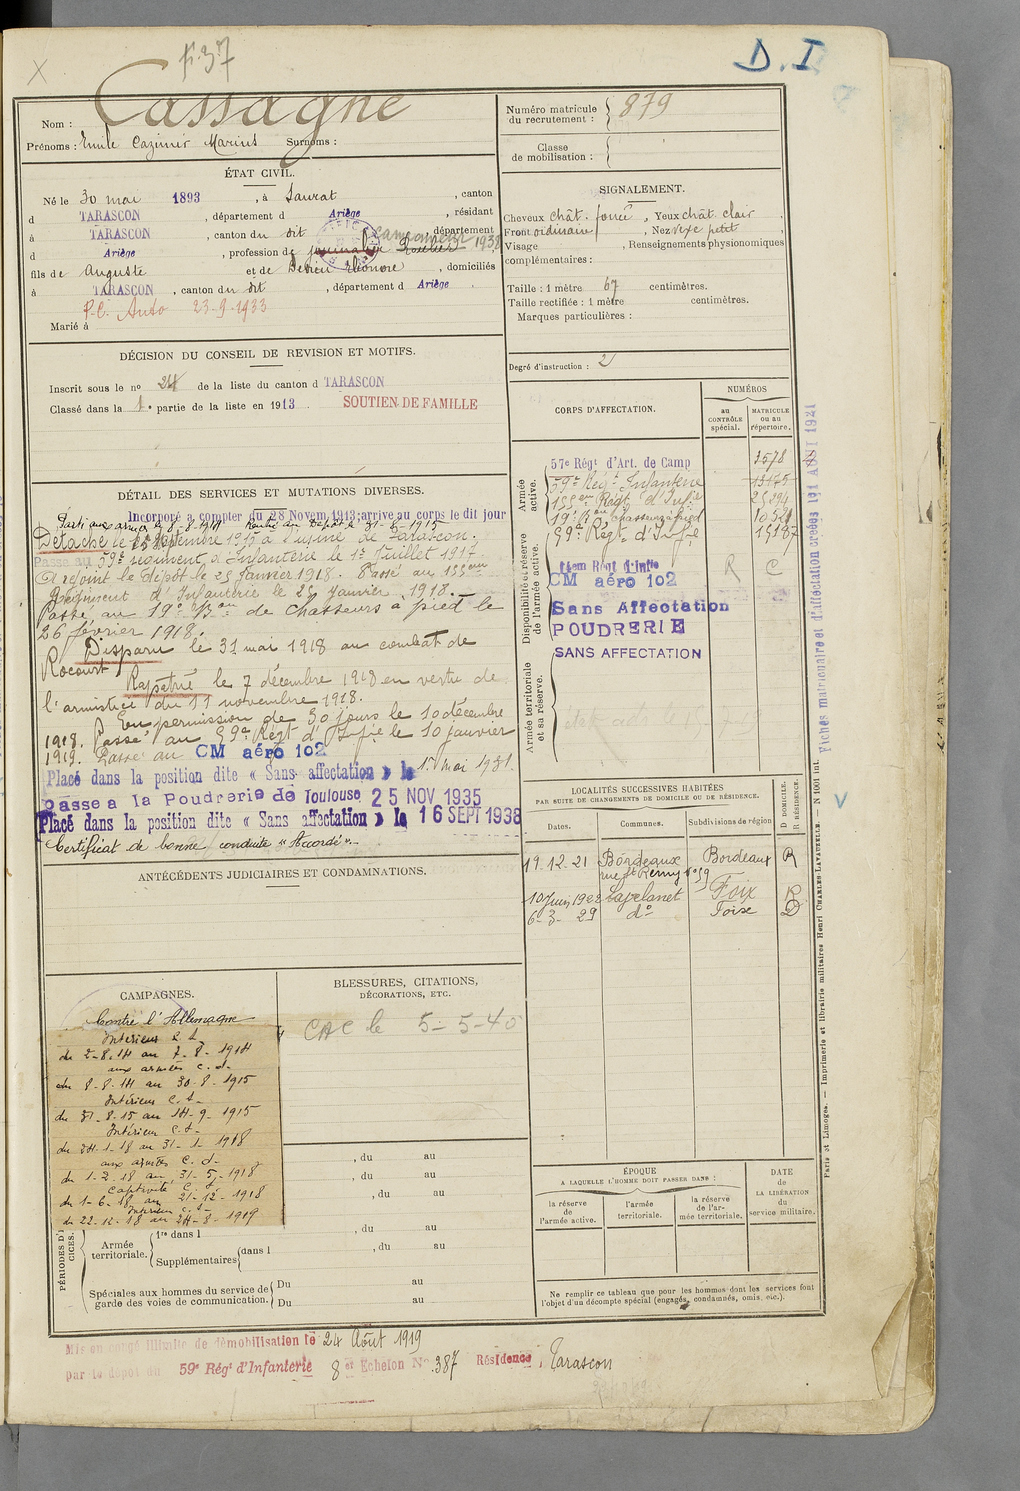 p. 37
D.I
Nom : Cassagne
Prénoms : Emile Cazimir Marius Surnoms :
Numéro matricule du recrutement : 879
Classe de mobilisation :
ÉTAT CIVIL.
Né le 30 mai 1893, à Saurat, canton
d TARASCON, département d Ariège, résidant
à TARASCON, canton du dit, département
d Ariège, profession de journalier Camionneur 1938
fils de Auguste et de , domiciliés
à TARASCON, canton du dit, département d Ariège.
P.C. Auto 23-9-1933
Marié à
SIGNALEMENT.
Cheveux chât. foncé, Yeux chât. clair,
Front ordinaire, Nez vexe petit,
Visage , Renseignements physionomiques
complémentaires :
Taille : 1 mètre 67 centimètres.
Taille rectifiée : 1 mètre centimètres.
Marques particulières :
Degré d'instruction : 2
DÉCISION DU CONSEIL DE REVISION ET MOTIFS.
Inscrit sous le no 24 de la liste du canton d TARASCON
Classé dans la 1e partie de la liste en 1913. SOUTIEN DE FAMILLE
DÉTAIL DES SERVICES ET MUTATIONS DIVERSES.
Incorporé a compter du 28 Novem. 1913; arrive au corps le dit jour
Parti aux armées le 8-8-1914 Rentré au Dépôt le 31-8-1915
Détaché le 15 septembre 1915 à l'usine de Tarascon.
Passé au 59e régiment d'Infanterie le 1er Juillet 1917
A rejoint le dépôt le 25 Janvier 1918. Passé au 155eme
Régiment d'Infanterie le 27 Janvier 1918.
Passé au 19e Bon de chasseurs à pied le
26 février 1918.
Disparu le 31 mai 1918 au combat de
Rocourt
Rapatrié le 7 décembre 1918 en vertu de
l'armistice du 11 novembre 1918.
En permission de 30 jours le 10 décembre
1918. Passé au 59e Régt d'Infie le 10 janvier
1919. Passé au CM aéro 102
Placé dans la position dite « Sans affectation » le 1er mai 1931
passe a la Poudrerie de Toulouse 25 NOV 1935
Placé dans la position dite « Sans affectation » le 16 SEPT 1938
Certificat de bonne conduite "Accordé"
CORPS D'AFFECTATION.
NUMÉROS
au CONTRÔLE spécial.
MATRICULE ou au répertoire.
Armée active.
57e Régt d'Art. de Camp 3578
59e Régt Infanterie 13175
155eme Régt d'Infie 25294
19e Bon Chasseurs à pied 10521
59e Régt d'Infie 15187
Disponibilité et réserve de l'armée active.
CM aéro 102 R C
Sans Affectation
POUDRERIE
SANS AFFECTATION
Armée territoriale et sa réserve.
Fiches matricule et d'affectation creées le 1 AOUT 1921
LOCALITÉS SUCCESSIVES HABITÉES
PAR SUITE DE CHANGEMENTS DE DOMICILE OU DE RÉSIDENCE.
D DOMICILE.
R RÉSIDENCE.
Dates. Communes. Subdivisions de région
19.12.21 Bordeaux Bordeaux R
rue St Rémy no 59
10 Juin 1922 Lavelanet Foix R
6-3-29 do Foix D
ANTÉCÉDENTS JUDICIAIRES ET CONDAMNATIONS.
CAMPAGNES.
Contre l'Allemagne
Intérieur C.S.
du 2-8-14 au 7-8-1914
aux armées c.d.
du 8-8-14 au 30-8-1915
Intérieur C.S.
du 31-8-15 au 14-9-1915
Intérieur C.S.
du 24-1-18 au 31-1-1918
aux armées C.d.
du 1-2-18 au 31-5-1918
captivité C.S.
du 1-6-18 au 21-12-1918
Intérieur C.S.
du 22-12-18 au 24-8-1919
BLESSURES, CITATIONS,
DÉCORATIONS, ETC.
CAC le 5-5-40
, du au
, du au
, du au
PÉRIODES D'
CICES.
Armée territoriale.
1re dans l , du au
Supplémentaires dans l , du au
Spéciales aux hommes du service de garde des voies de communication.
Du au
Du au
ÉPOQUE
A LAQUELLE L'HOMME DOIT PASSER DANS :
la réserve de l'armée active.
l'armée territoriale.
la réserve de l'armée territoriale.
DATE de LA LIBÉRATION du service militaire.
Ne remplir ce tableau que pour les hommes dont les services font
l'objet d'un décompte spécial (engagés, condamnés, omis, etc.).
Paris et Limoges. — Imprimerie et librairie militaires Henri CHARLES-LAVAUZELLE. — N 1001 int.
Mis en congé illimité de démobilisation le 24 Août 1919
par le dépôt du 59e Régt d'Infanterie 8e Echelon No 387 Résidence, Tarascon